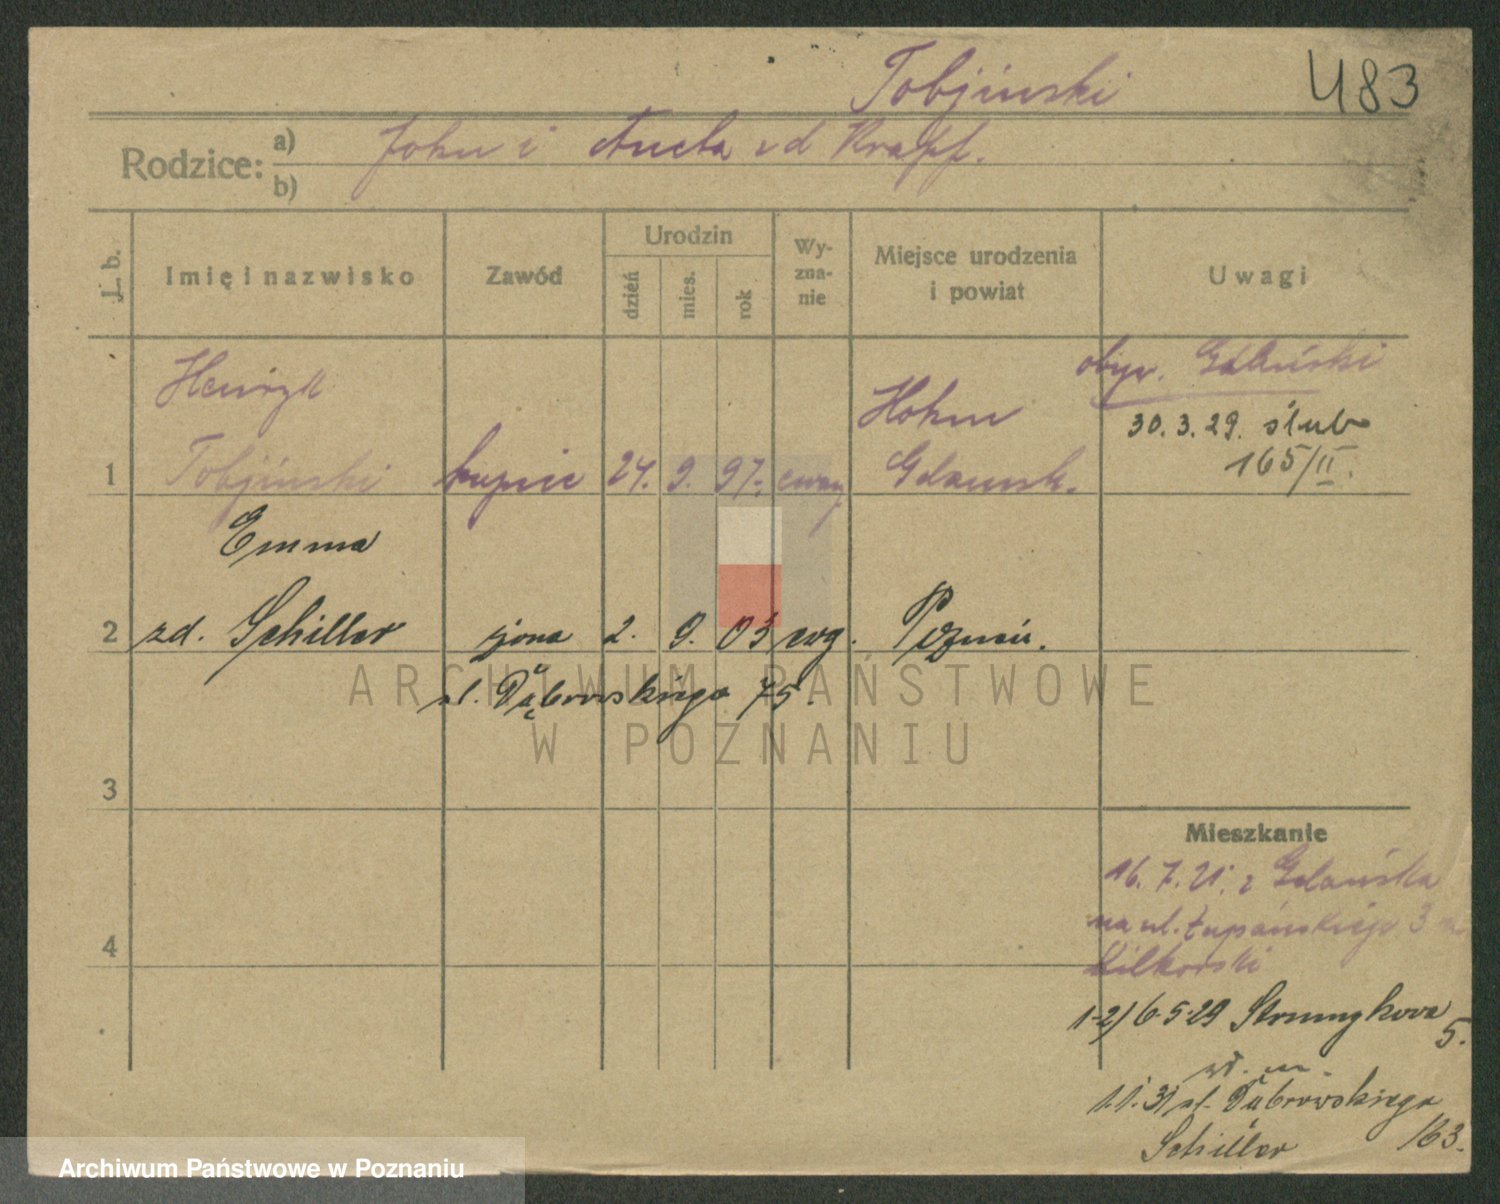 Tobjinski
483
Rodzice:
a) John i Aneta zd Krapf.
b)
L. b.
Imię i nazwisko
Zawód
Urodzin
dzień
mies.
rok
Wy-
zna-
nie
Miejsce urodzenia
i powiat
Uwagi
Henryk
Hohm
obyw. Gdański
30. 3. 29. ślub
165/II.
1 Tobjinski kupiec 24. 9. 97. ewang Gdańsk.
Emma
2 zd. Schiller żona 2. 9. 03 ewg. Poznań.
ul. Dąbrowskiego 75.
ARCHIWUM PAŃSTWOWE
W POZNANIU
3
4
Mieszkanie
16. 7. 21. z Gdańska
na ul. Łupańskiego 3
1-2) 6.5.29 Strumykowa
5.
wł. m.
1.1.31 ul. Dąbrowskiego
Schiller 163.
Archiwum Państwowe w Poznaniu